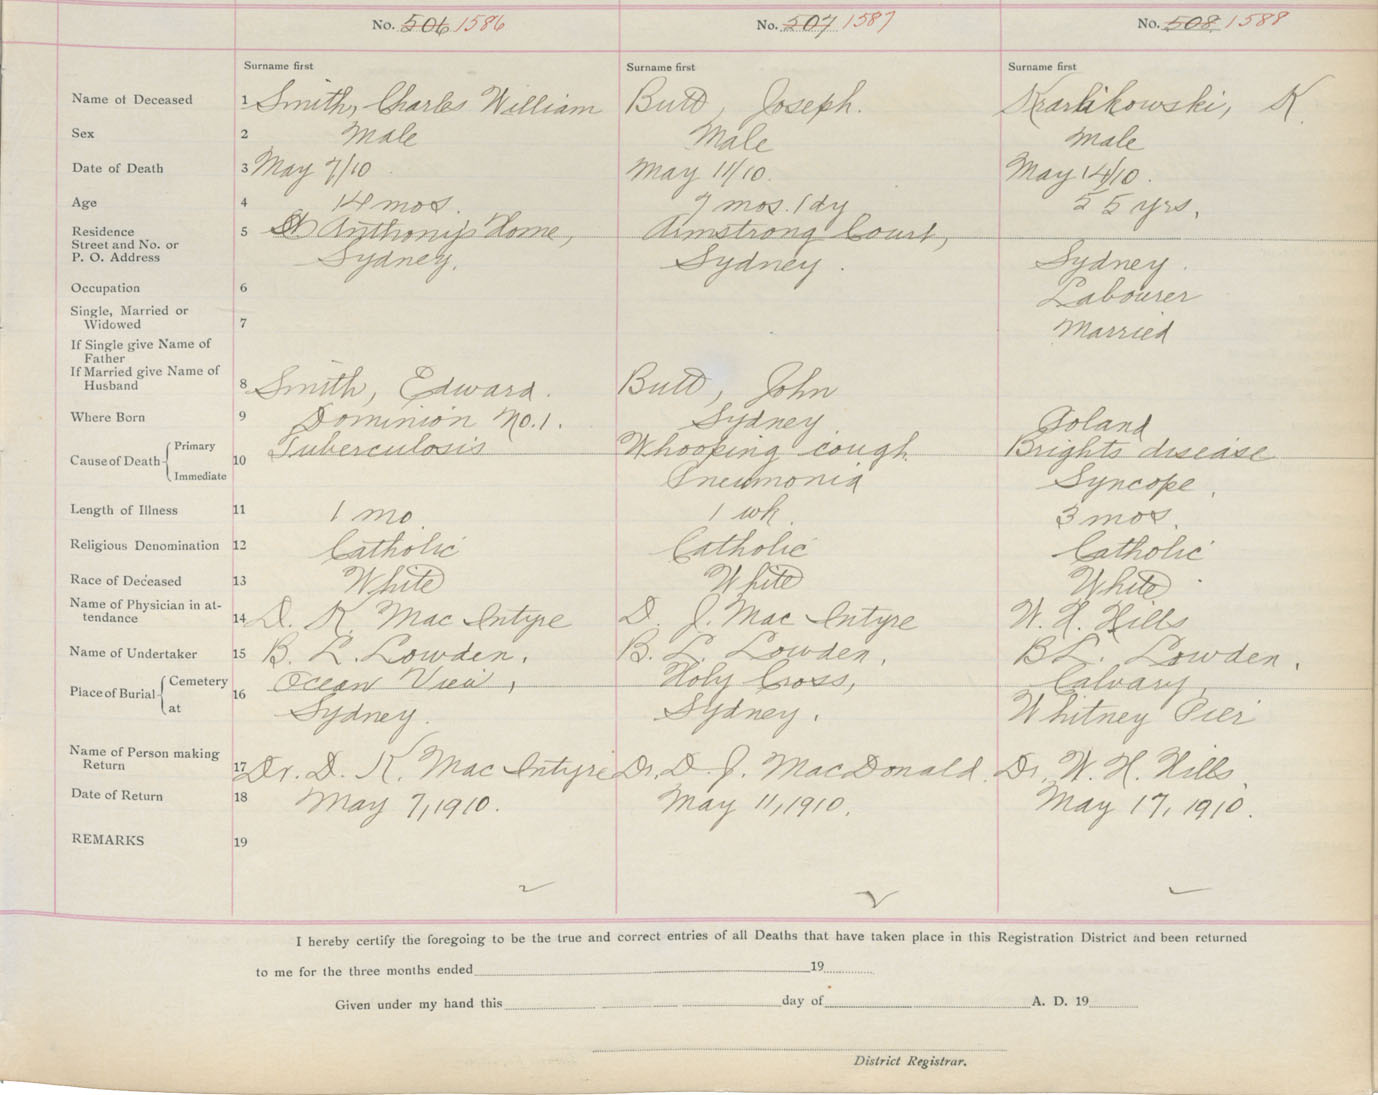 No. 506 1586 No. 507 1587 No. 508 1588
Surname first Surname first Surname first
Name of Deceased 1 Smith, Charles William Butt, Joseph. Krarlikowski, K
Sex 2 Male Male Male
Date of Death 3 May 7/10 May 11/10. May 14/10.
Age 4 14 mos. 7 mos. 1 dy 55 yrs.
Residence 5 St Anthony's Home, Armstrong Court,
Street and No. or
P. O. Address Sydney. Sydney. Sydney.
Occupation 6 Labourer
Single, Married or
Widowed 7 Married
If Single give Name of
Father
If Married give Name of
Husband 8 Smith, Edward. Butt, John
Where Born 9 Dominion No. 1. Sydney Poland
Cause of Death Primary 10 Tuberculosis Whooping cough Brights disease
Immediate Pneumonia Syncope.
Length of Illness 11 1 mo 1 wk. 3 mos.
Religious Denomination 12 Catholic Catholic Catholic
Race of Deceased 13 White White White
Name of Physician in at-
tendance 14 D. K. Mac Intyre D. J. Mac Intyre W. H. Hills
Name of Undertaker 15 B. L. Lowden. B. L. Lowden. B L. Lowden.
Place of Burial Cemetery 16 Ocean View, Holy Cross, Calvary,
at Sydney. Sydney. Whitney Pier
Name of Person making
Return 17 Dr. D. K. Mac Intyre Dr. D. J. MacDonald. Dr. W. H. Hills.
Date of Return 18 May 7, 1910. May 11, 1910. May 17, 1910.
REMARKS 19
I hereby certify the foregoing to be the true and correct entries of all Deaths that have taken place in this Registration District and been returned
to me for the three months ended 19
Given under my hand this day of A. D. 19
District Registrar.